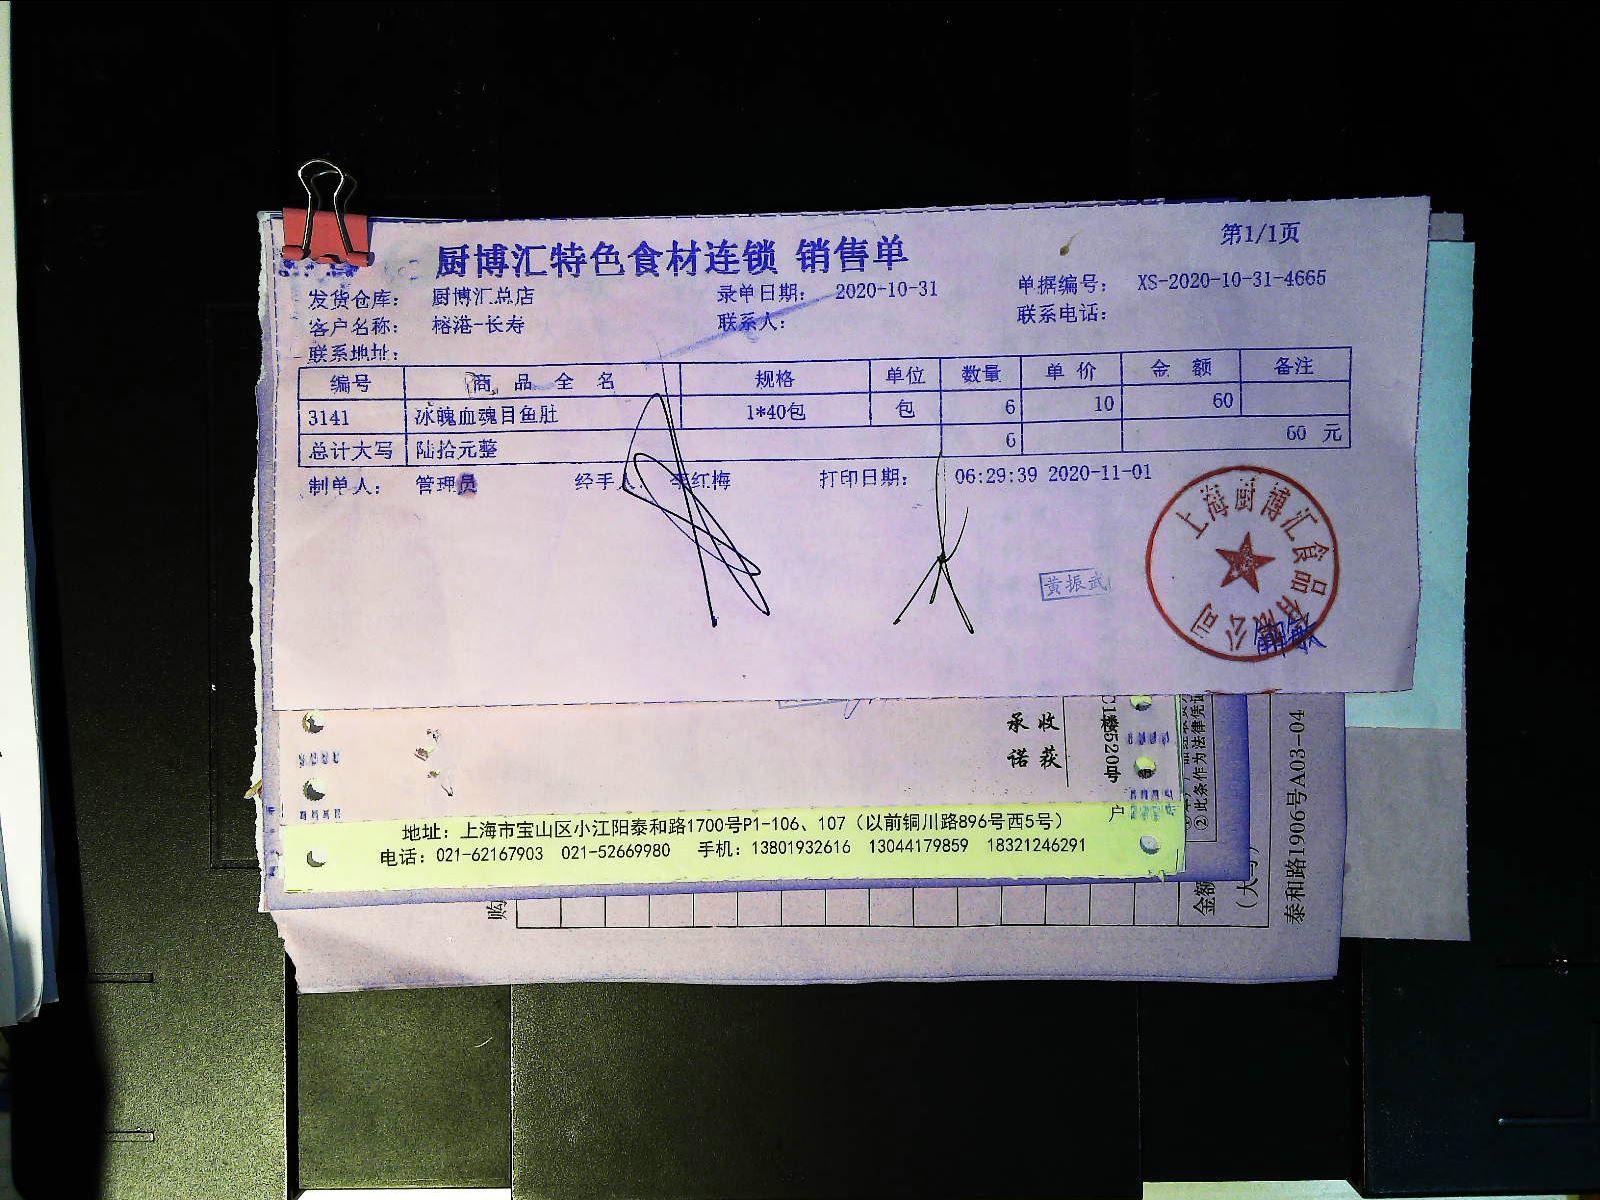 第1/1页
厨博汇特色食材连锁 销售单
发货仓库： 厨博汇总店 录单日期： 2020-10-31 单据编号： XS-2020-10-31-4665
客户名称： 榕港-长寿 联系人： 联系电话：
联系地址：
编号 商品全名 规格 单位 数量 单价 金额 备注
3141 冰魄血魂目鱼肚 1*40包 包 6 10 60
总计大写 陆拾元整 6 60 元
制单人： 管理员 经手人： 李红梅 打印日期： 06:29:39 2020-11-01
上海厨博汇食品有限公司
黄振武
承诺 收获
地址：上海市宝山区小江阳泰和路1700号P1-106、107（以前铜川路896号西5号）
电话：021-62167903 021-52669980 手机：13801932616 13044179859 18321246291
户
②此条作为法律凭证
购
金额
（大写）
泰和路1906号A03-04